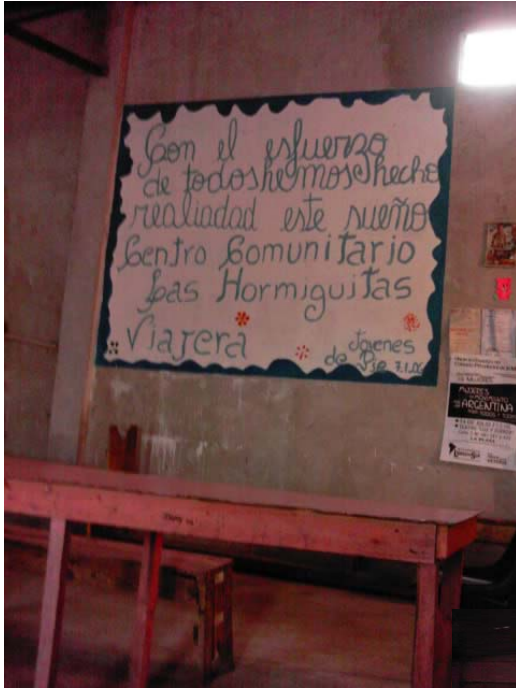 Con el esfuerzo
de todos hemos hecho
realiadad este sueño
Centro Comunitario
Las Hormiguitas
Viajera
Jovenes
de Pie
MUJERES
ARGENTINA